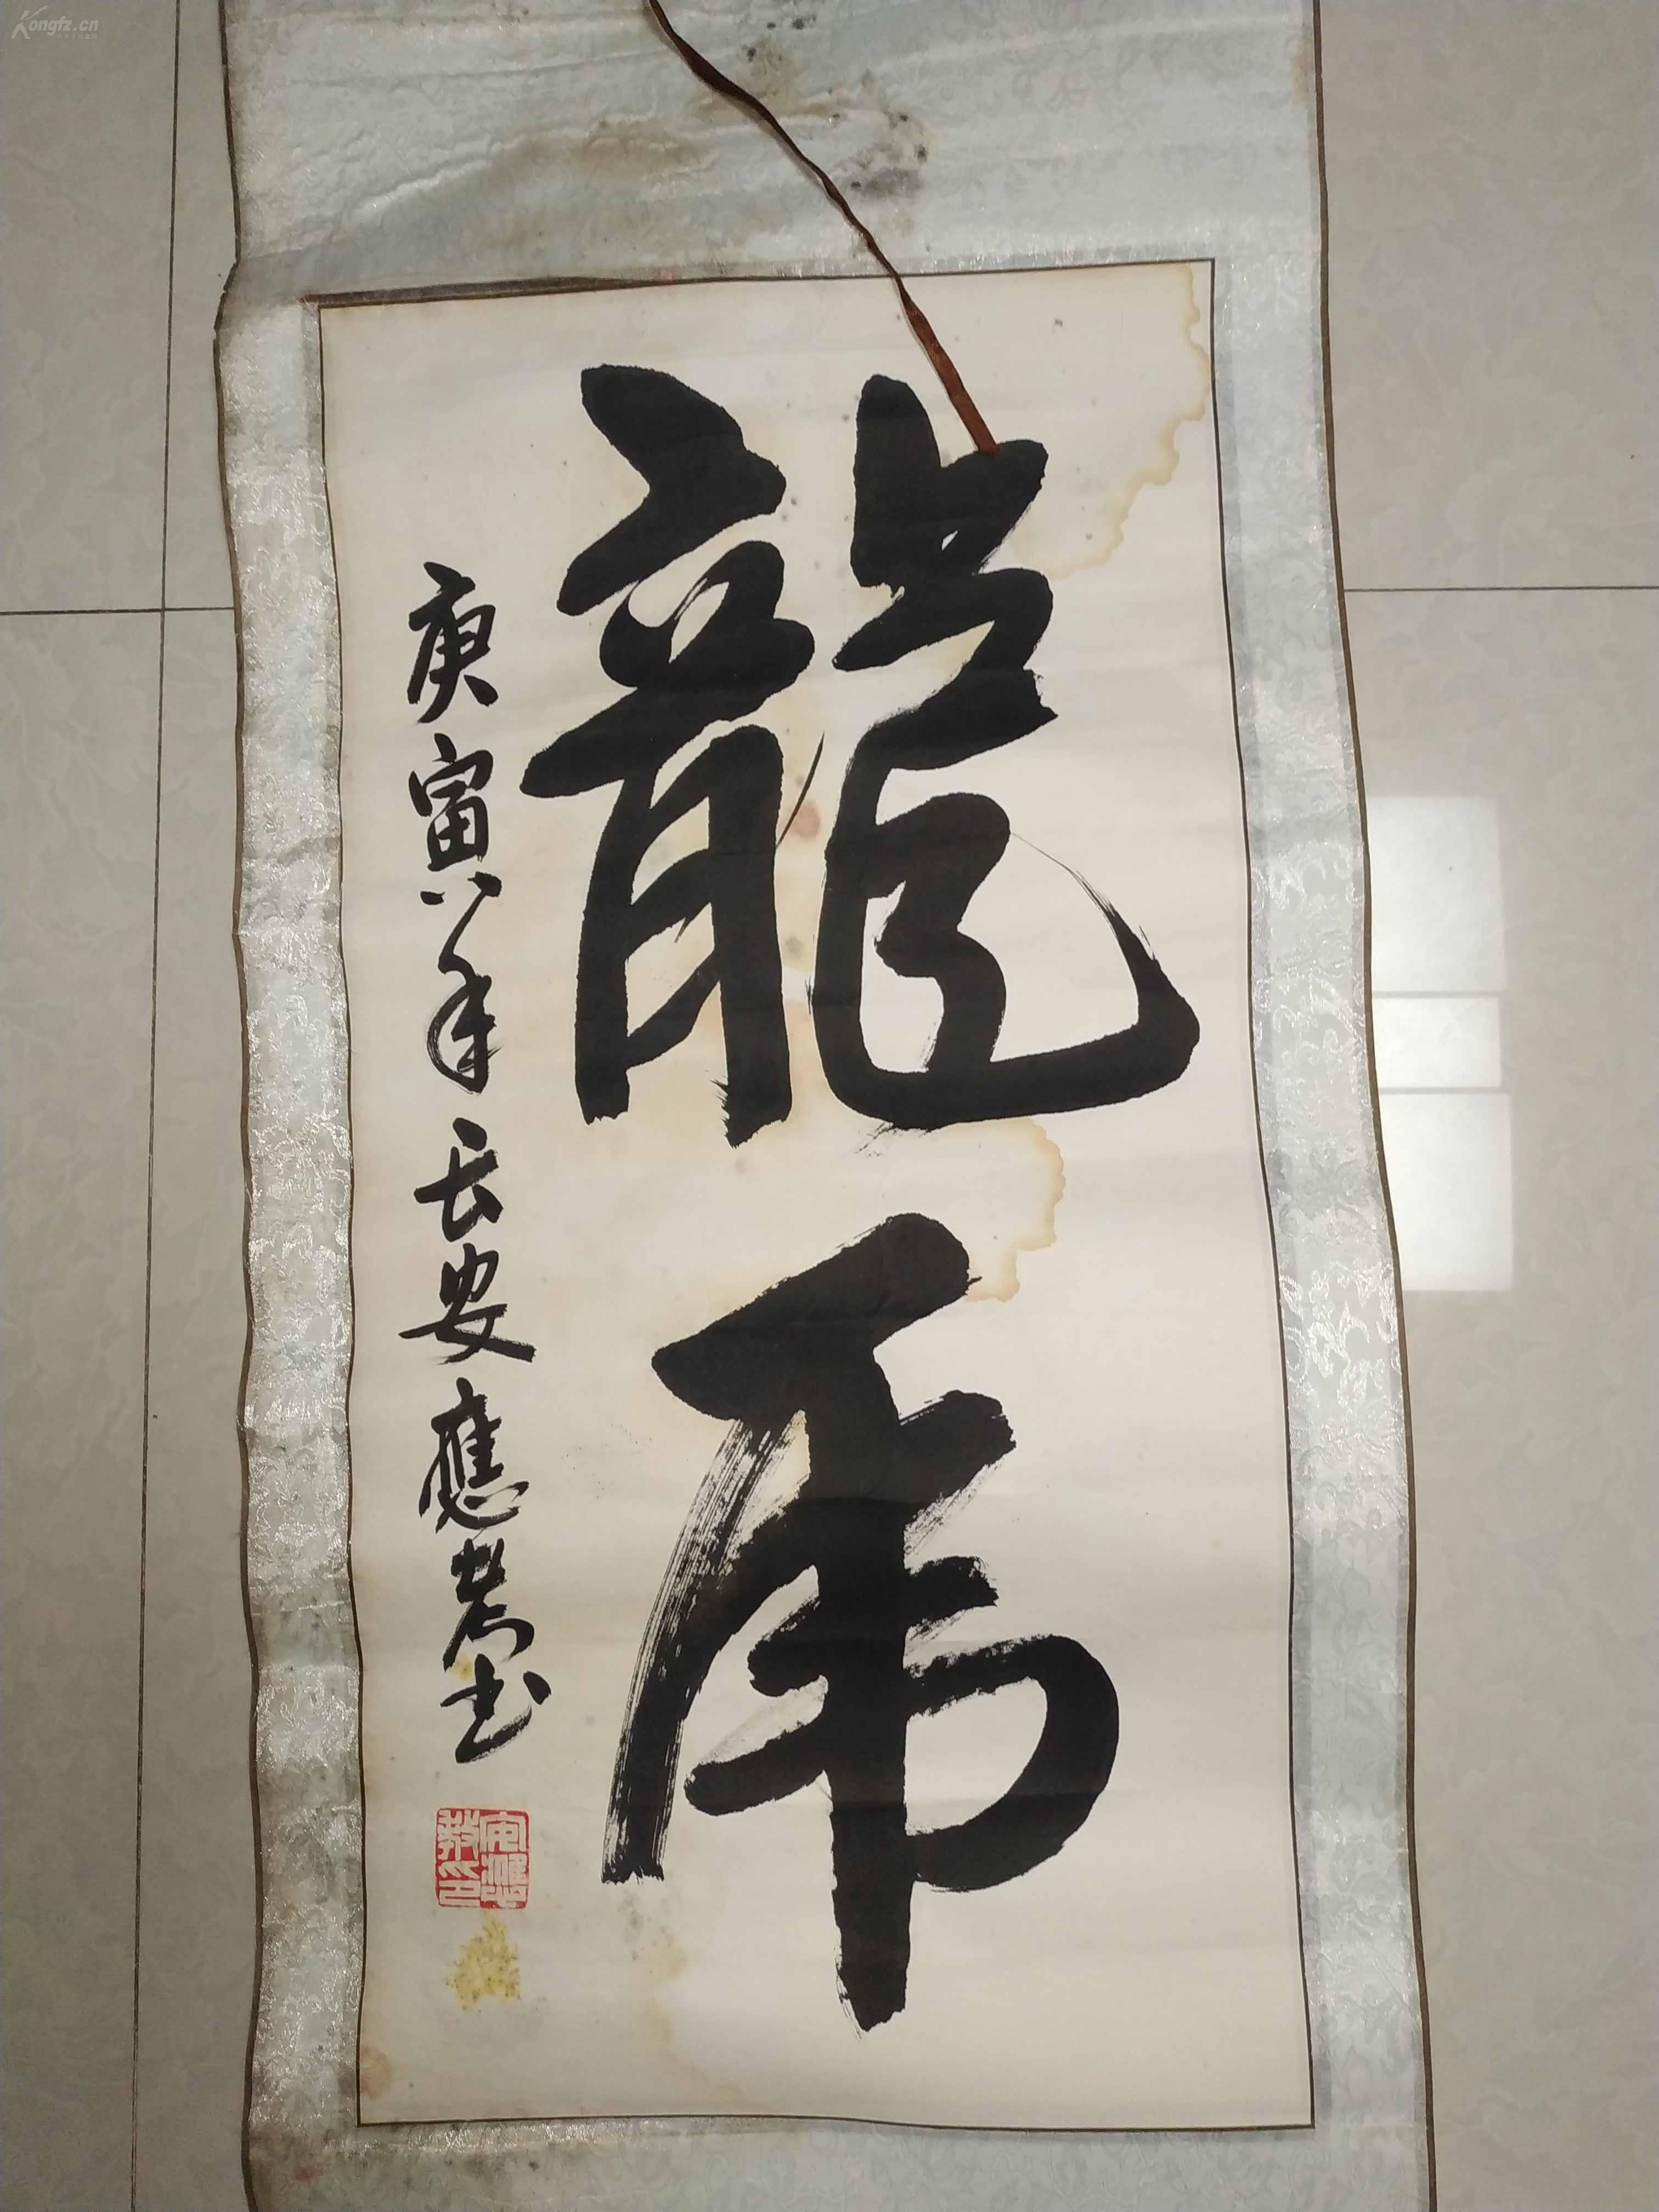 Kongfz.cn
龍虎
庚寅年长安應书